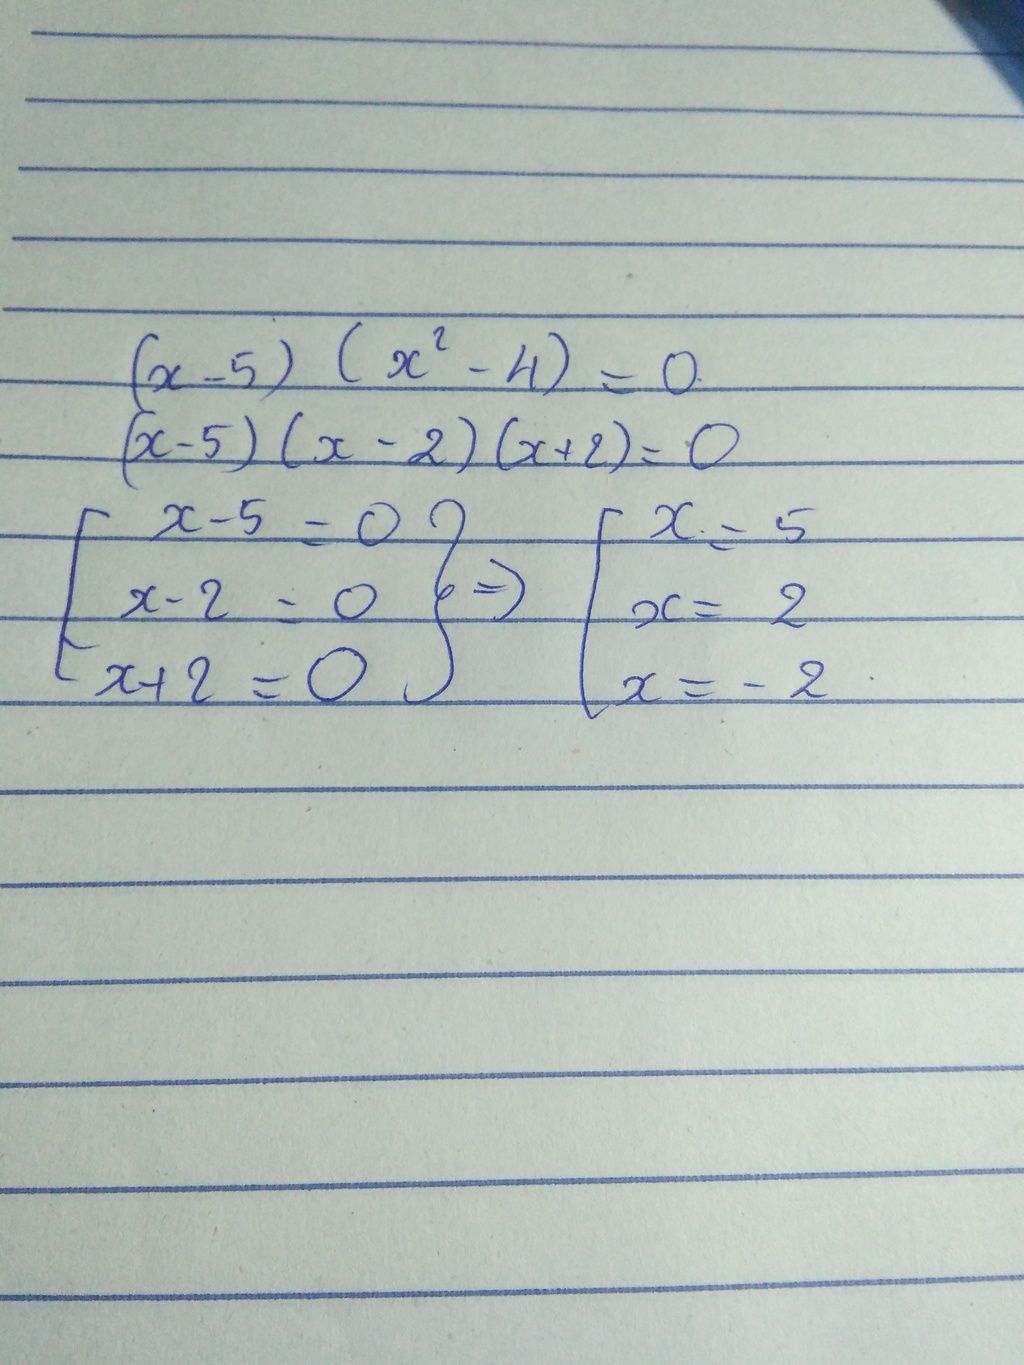 (x-5) (x²-4)=0
(x-5)(x-2)(x+2)=0
[ x-5=0 } ⇒ [ x=5
x-2=0 x=2
x+2=0 x=-2